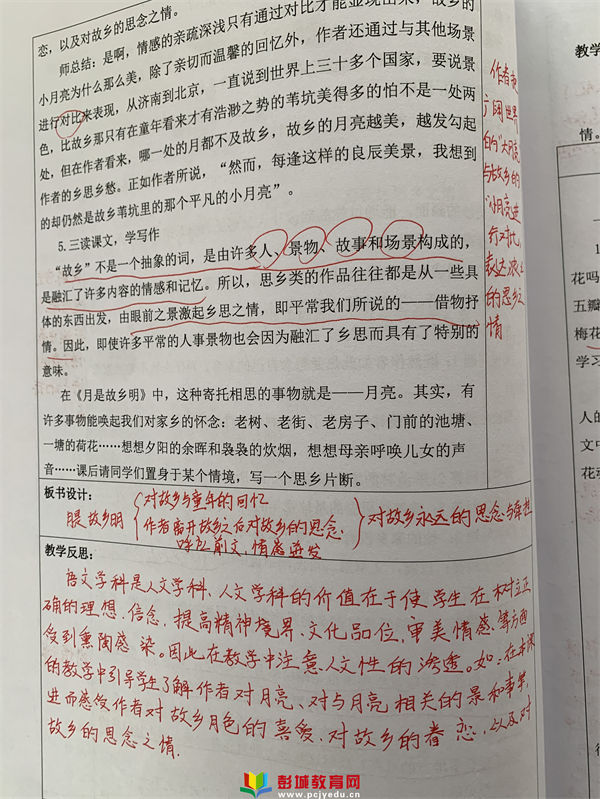 恋,以及对故乡的思念之情。
师总结:是啊,情感的亲疏深浅只有通过对比才能显现出来,故乡的
小月亮为什么那么美,除了亲切而温馨的回忆外,作者还通过与其他场景
进行对比来表现,从济南到北京,一直说到世界上三十多个国家,要说景
色,比故乡那只有在童年看来才有浩渺之势的苇坑美得多的怕不是一处两
处,但在作者看来,哪一处的月都不及故乡,故乡的月亮越美,越发勾起
作者的乡思乡愁。正如作者所说,“然而,每逢这样的良辰美景,我想到
的却仍然是故乡苇坑里的那个平凡的小月亮”。
5.三读课文,学写作
“故乡”不是一个抽象的词,是由许多人、景物、故事和场景构成的,
是融汇了许多内容的情感和记忆。所以,思乡类的作品往往都是从一些具
体的东西出发,由眼前之景激起乡思之情,即平常我们所说的——借物抒
情。因此,即使许多平常的人事景物也会因为融汇了乡思而具有了特别的
意味。
在《月是故乡明》中,这种寄托相思的事物就是——月亮。其实,有
许多事物能唤起我们对家乡的怀念:老树、老街、老房子、门前的池塘、
一塘的荷花……想想夕阳的余晖和袅袅的炊烟,想想母亲呼唤儿女的声
音……课后请同学们置身于某个情境,写一个思乡片断。
作者把
广阔世界
的“大月亮”
与故乡的
“小月亮”进
行对比,
表达浓
的思乡之
情
板书设计:
月是故乡明
对故乡童年的回忆
作者离开故乡之后对故乡的思念.
呼应前文,情感迸发
对故乡永远的思念与牵挂
教学反思:
语文学科是人文学科、人文学科的价值在于使学生在树立正
确的理想、信念,提高精神境界、文化品位,审美情感等方面
受到熏陶感染。因此在教学中注意人文性的渗透。如:在本课
的教学中引导学生了解作者对月亮、对与月亮相关的景和事等,
进而感受作者对故乡月色的喜爱、对故乡的眷恋,以及对
故乡的思念之情.
教学
情。
花吗
五瓣
梅花
学习
人的
文中
花
彭城教育网
www.pcjyedu.cn